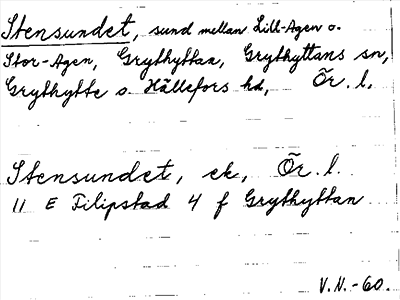 Stensundet, sund mellan Lill-Agen o.
Stor-Agen, Grythyttan, Grythyttans sn,
Grythytte o. Hällefors hd, Ör. l.
Stensundet, ek, Ör. l.
11 E Filipstad 4 f Grythyttan
V.N.-60.